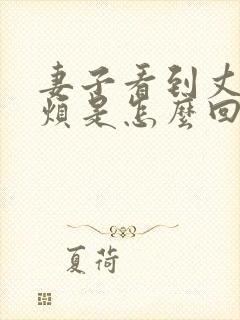 妻子看到丈
煩是怎麼回
夏荷